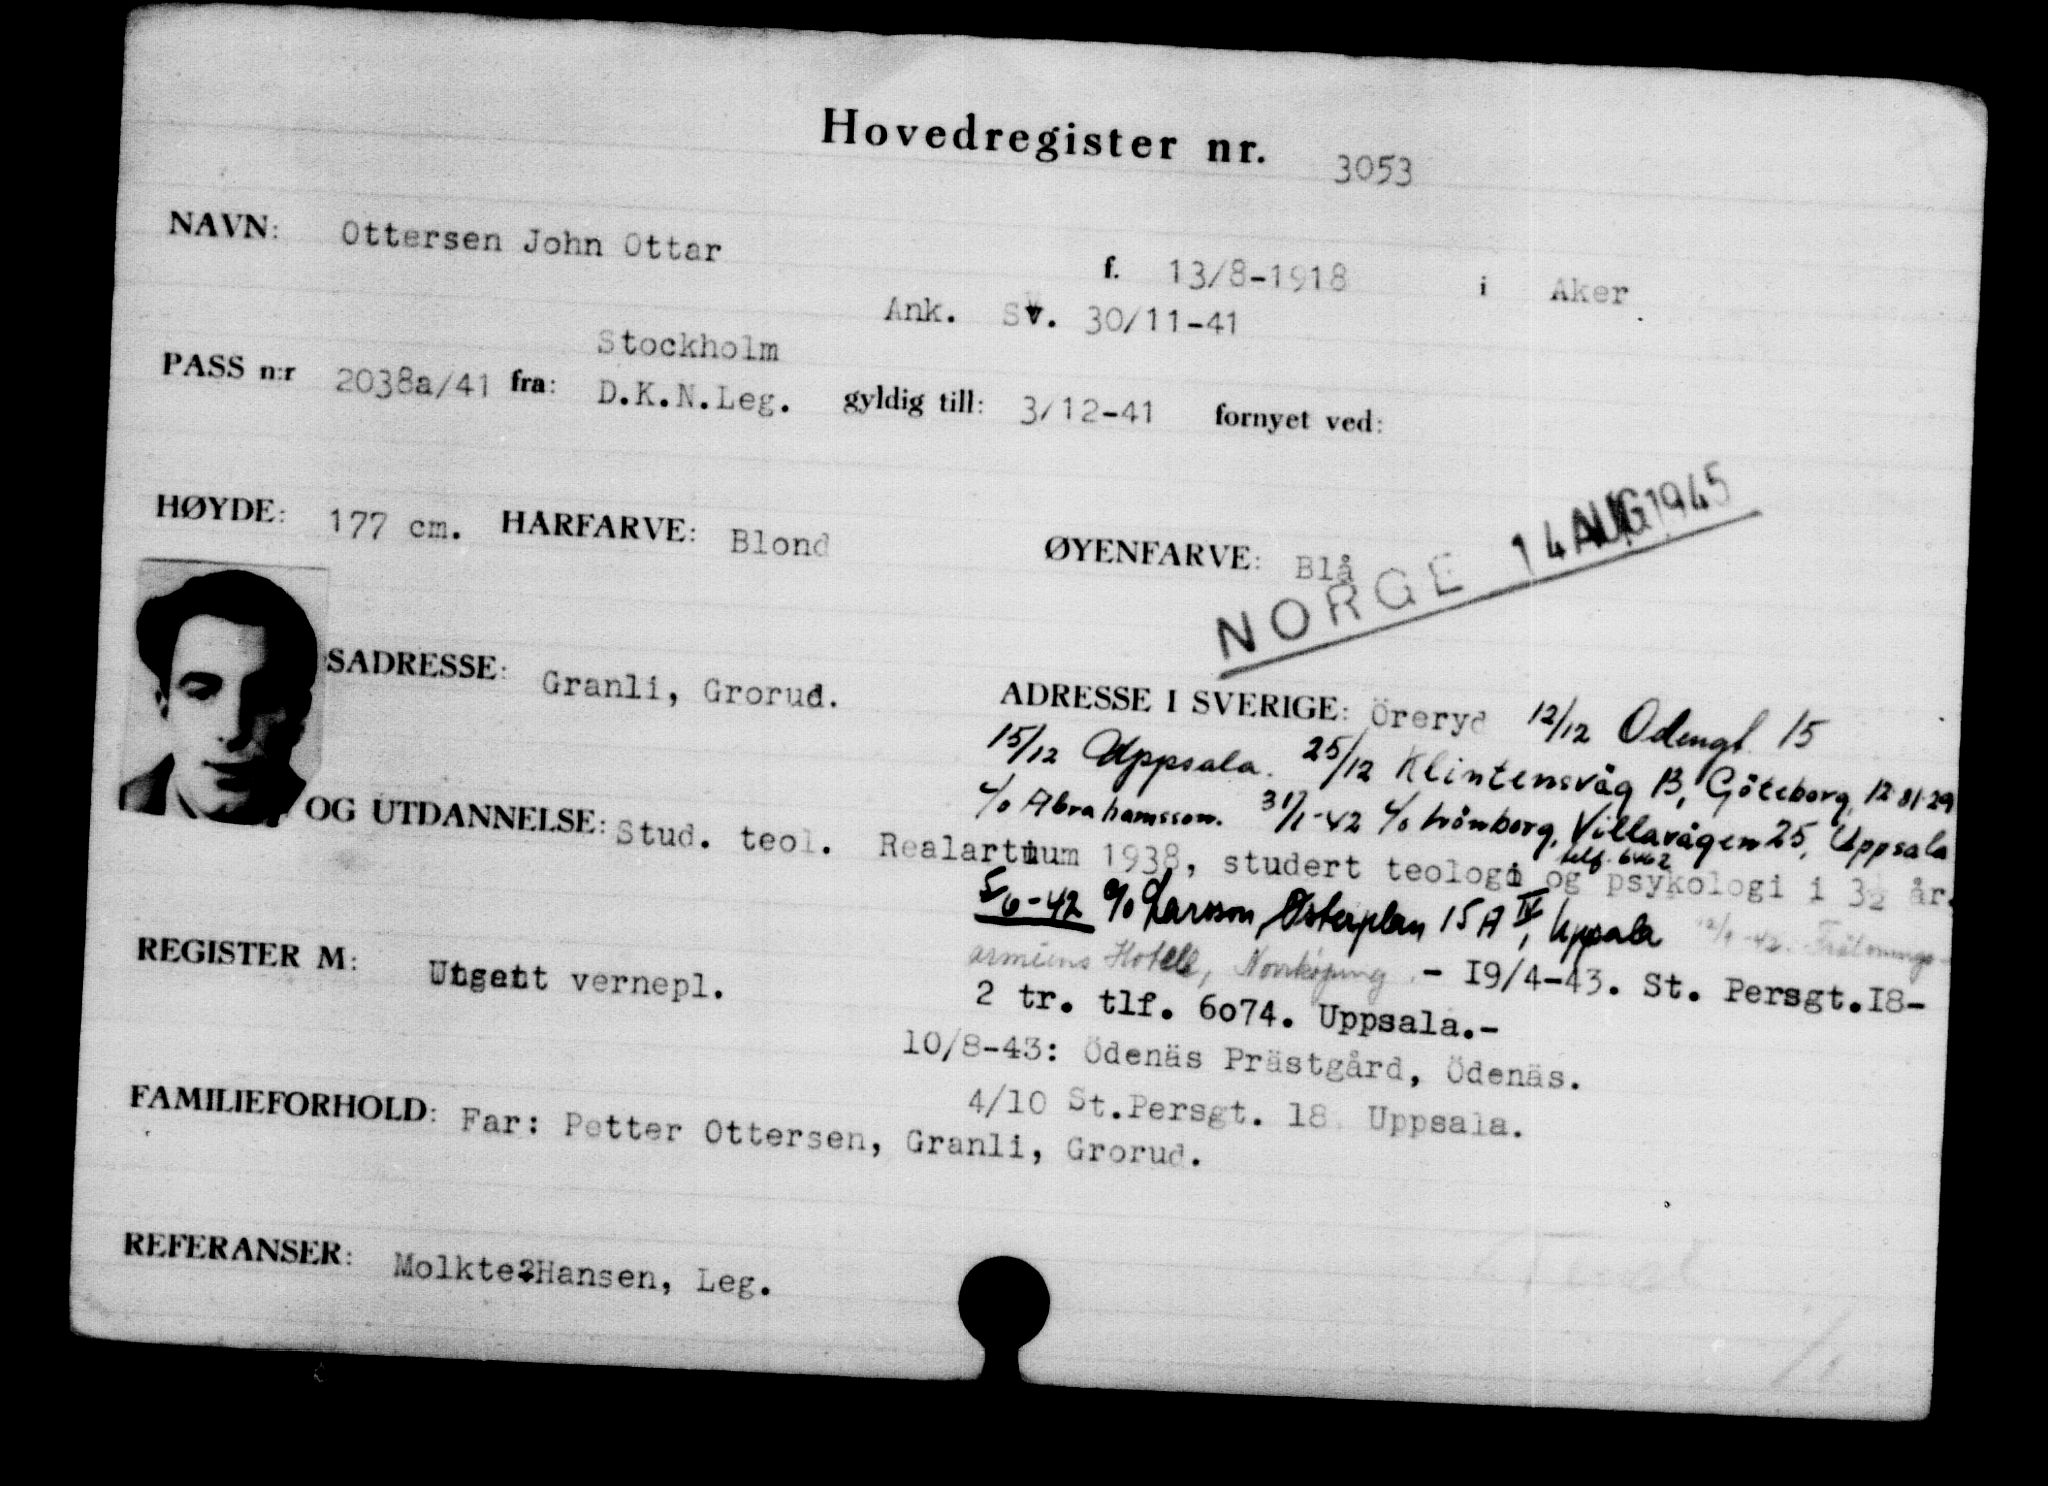 Hovedregister nr. 3053
NAVN: Ottersen John Ottar f. 13/8-1918 i Aker
Ank. SV. 30/11-41
Stockholm
PASS n:r 2038a/41 fra: D.K.N.Leg. gyldig till: 3/12-41 fornyet ved:
HØYDE: 177 cm. HARFARVE: Blond ØYENFARVE: Blå
NORGE 14 AUG 1945
SADRESSE: Granli, Grorud. ADRESSE I SVERIGE: Öreryd 12/12 Odengt. 15
15/12 Uppsala. 25/12 Klintensväg 13, Göteborg, 12 81 29
c/o Abrahamsson. 31/1-42 c/o Lrönborg, Villavägen 25, Uppsala
telf. 6462
OG UTDANNELSE: Stud. teol. Realartium 1938, studert teologi og psykologi i 3½ år.
5/6-42 c/o Larsson, Österplan 15 A IV, Uppsala 12/9-42. Frälsnings-
armeens Hotell, Norrköping. - I9/4-43. St. Persgt.I8-
REGISTER M: Utsatt vernepl. 2 tr. tlf. 6o74. Uppsala.-
10/8-43: Ödenäs Prästgård, Ödenäs.
4/10 St.Persgt. 18. Uppsala.
FAMILIEFORHOLD: Far: Petter Ottersen, Granli, Grorud.
REFERANSER: Molkte?Hansen, Leg.